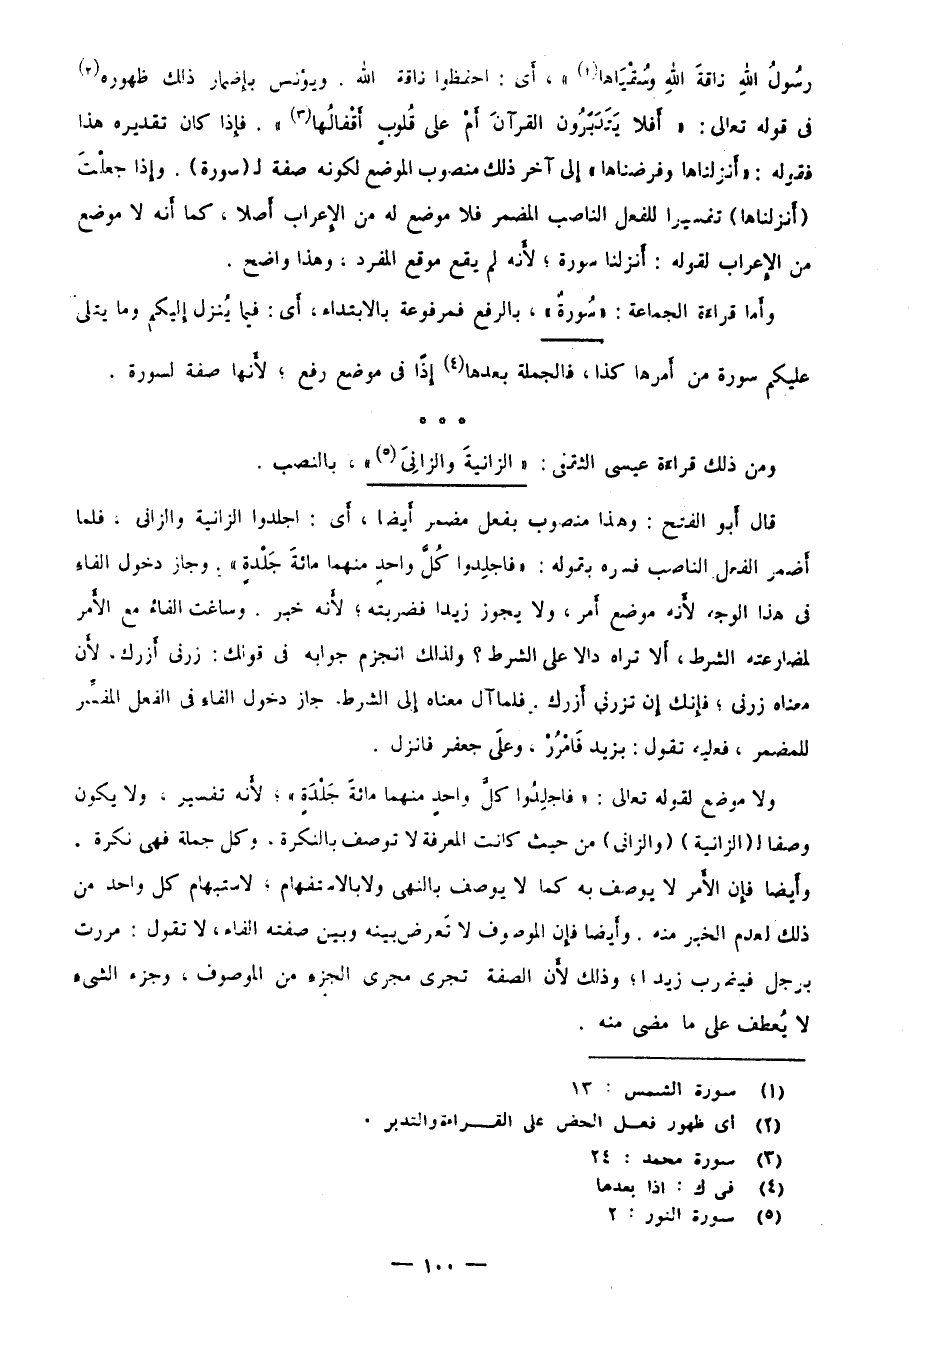 رسُولُ اللهِ ناقةَ اللهِ وسُقْيَاها(١) » ، أَى : احفظوا ناقة الله . ويؤنس بإضمار ذلك ظهوره(٢)
فى قوله تعالى : « أَفلا يَتَدَبَّرُون القرآنَ أَمْ على قُلوبٍ أَقْفالُها(٣) » . فإذا كان تقديره هذا
فقوله : «أَنزلناها وفرضناها» إلى آخر ذلك منصوب الموضع لكونه صفة لـ (سورة) . وإذا جعلتَ
(أَنزلناها) تفسيرا للفعل الناصب المضمر فلا موضع له من الإعراب أصلا ، كما أنه لا موضع
من الإعراب لقوله : أَنزلنا سورة ؛ لأَنه لم يقع موقع المفرد ، وهذا واضح .
وأما قراءة الجماعة : «سُورةٌ» ، بالرفع فمرفوعة بالابتداء ، أَى : فيما يُنزل إليكم وما يتلى
عليكم سورة من أَمرها كذا ، فالجملة بعدها(٤) إذًا فى موضع رفع ؛ لأَنها صفة لسورة .
° ° °
ومن ذلك قراءة عيسى الثقفى : « الزانيةَ والزانِىَ(٥) » ، بالنصب .
قال أَبو الفتح : وهذا منصوب بفعل مضمر أَيضا ، أَى : اجلدوا الزانية والزانى ، فلما
أضمر الفعل الناصب فسره بقوله : «فاجلِدوا كُلَّ واحدٍ منهما مائةَ جَلْدةٍ» . وجاز دخول الفاء
فى هذا الوجه لأَنه موضع أمر ، ولا يجوز زيدا فضربته ؛ لأَنه خبر . وساغت الفاءُ مع الأَمر
لمضارعته الشرط ، أَلا تراه دالا على الشرط ؟ ولذلك انجزم جوابه فى قولك : زرنى أَزرك . لأَن
معناه زرنى ؛ فإنك إن تزرني أَزرك . فلما آل معناه إلى الشرط جاز دخول الفاء فى الفعل المفسِّر
للمضمر ، فعليه تقول : بزيد فَامْرُرْ ، وعلَى جعفر فانزل .
ولا موضع لقوله تعالى : « فاجلِدُوا كلَّ واحدٍ منهما مائةَ جَلْدَةٍ » ؛ لأَنه تفسير ، ولا يكون
وصفا لـ (الزانية) (والزانى) من حيث كانت المعرفة لا توصف بالنكرة . وكل جملة فهى نكرة .
وأَيضا فإن الأَمر لا يوصف به كما لا يوصف بالنهى ولا بالاستفهام ؛ لاستبهام كل واحد من
ذلك لعدم الخبر منه . وأيضا فإن الموصوف لا تَعرض بينه وبين صفته الفاء ، لا تقول : مررت
برجل فيضرب زيدا ؛ وذلك لأَن الصفة تجرى مجرى الجزء من الموصوف ، وجزء الشىء
لا يُعطف على ما مضى منه .
(١) سورة الشمس : ١٣
(٢) أى ظهور فعل الحض على القراءة والتدبر .
(٣) سورة محمد : ٢٤
(٤) فى ك : اذا بعدها
(٥) سورة النور : ٢
— ١٠٠ —